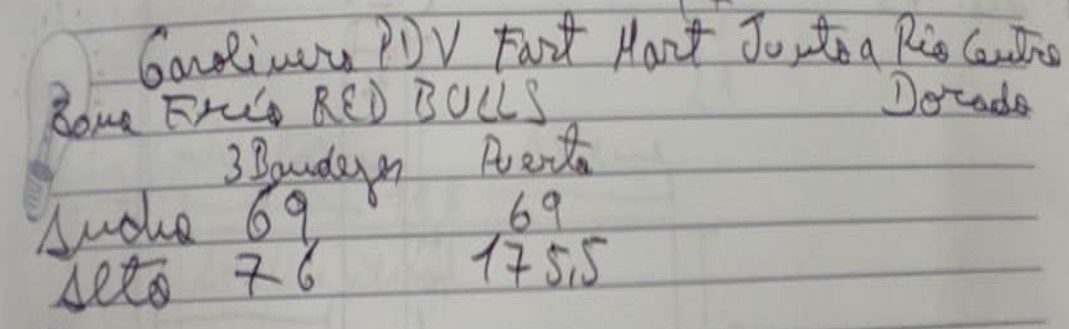 Gasolinera PDV Fart Mart Junto a Rio Centro
Dorado
Zona Fría RED BULLS
3 Bandejas Puerta
Ancho 69 69
Alto 76 175,5